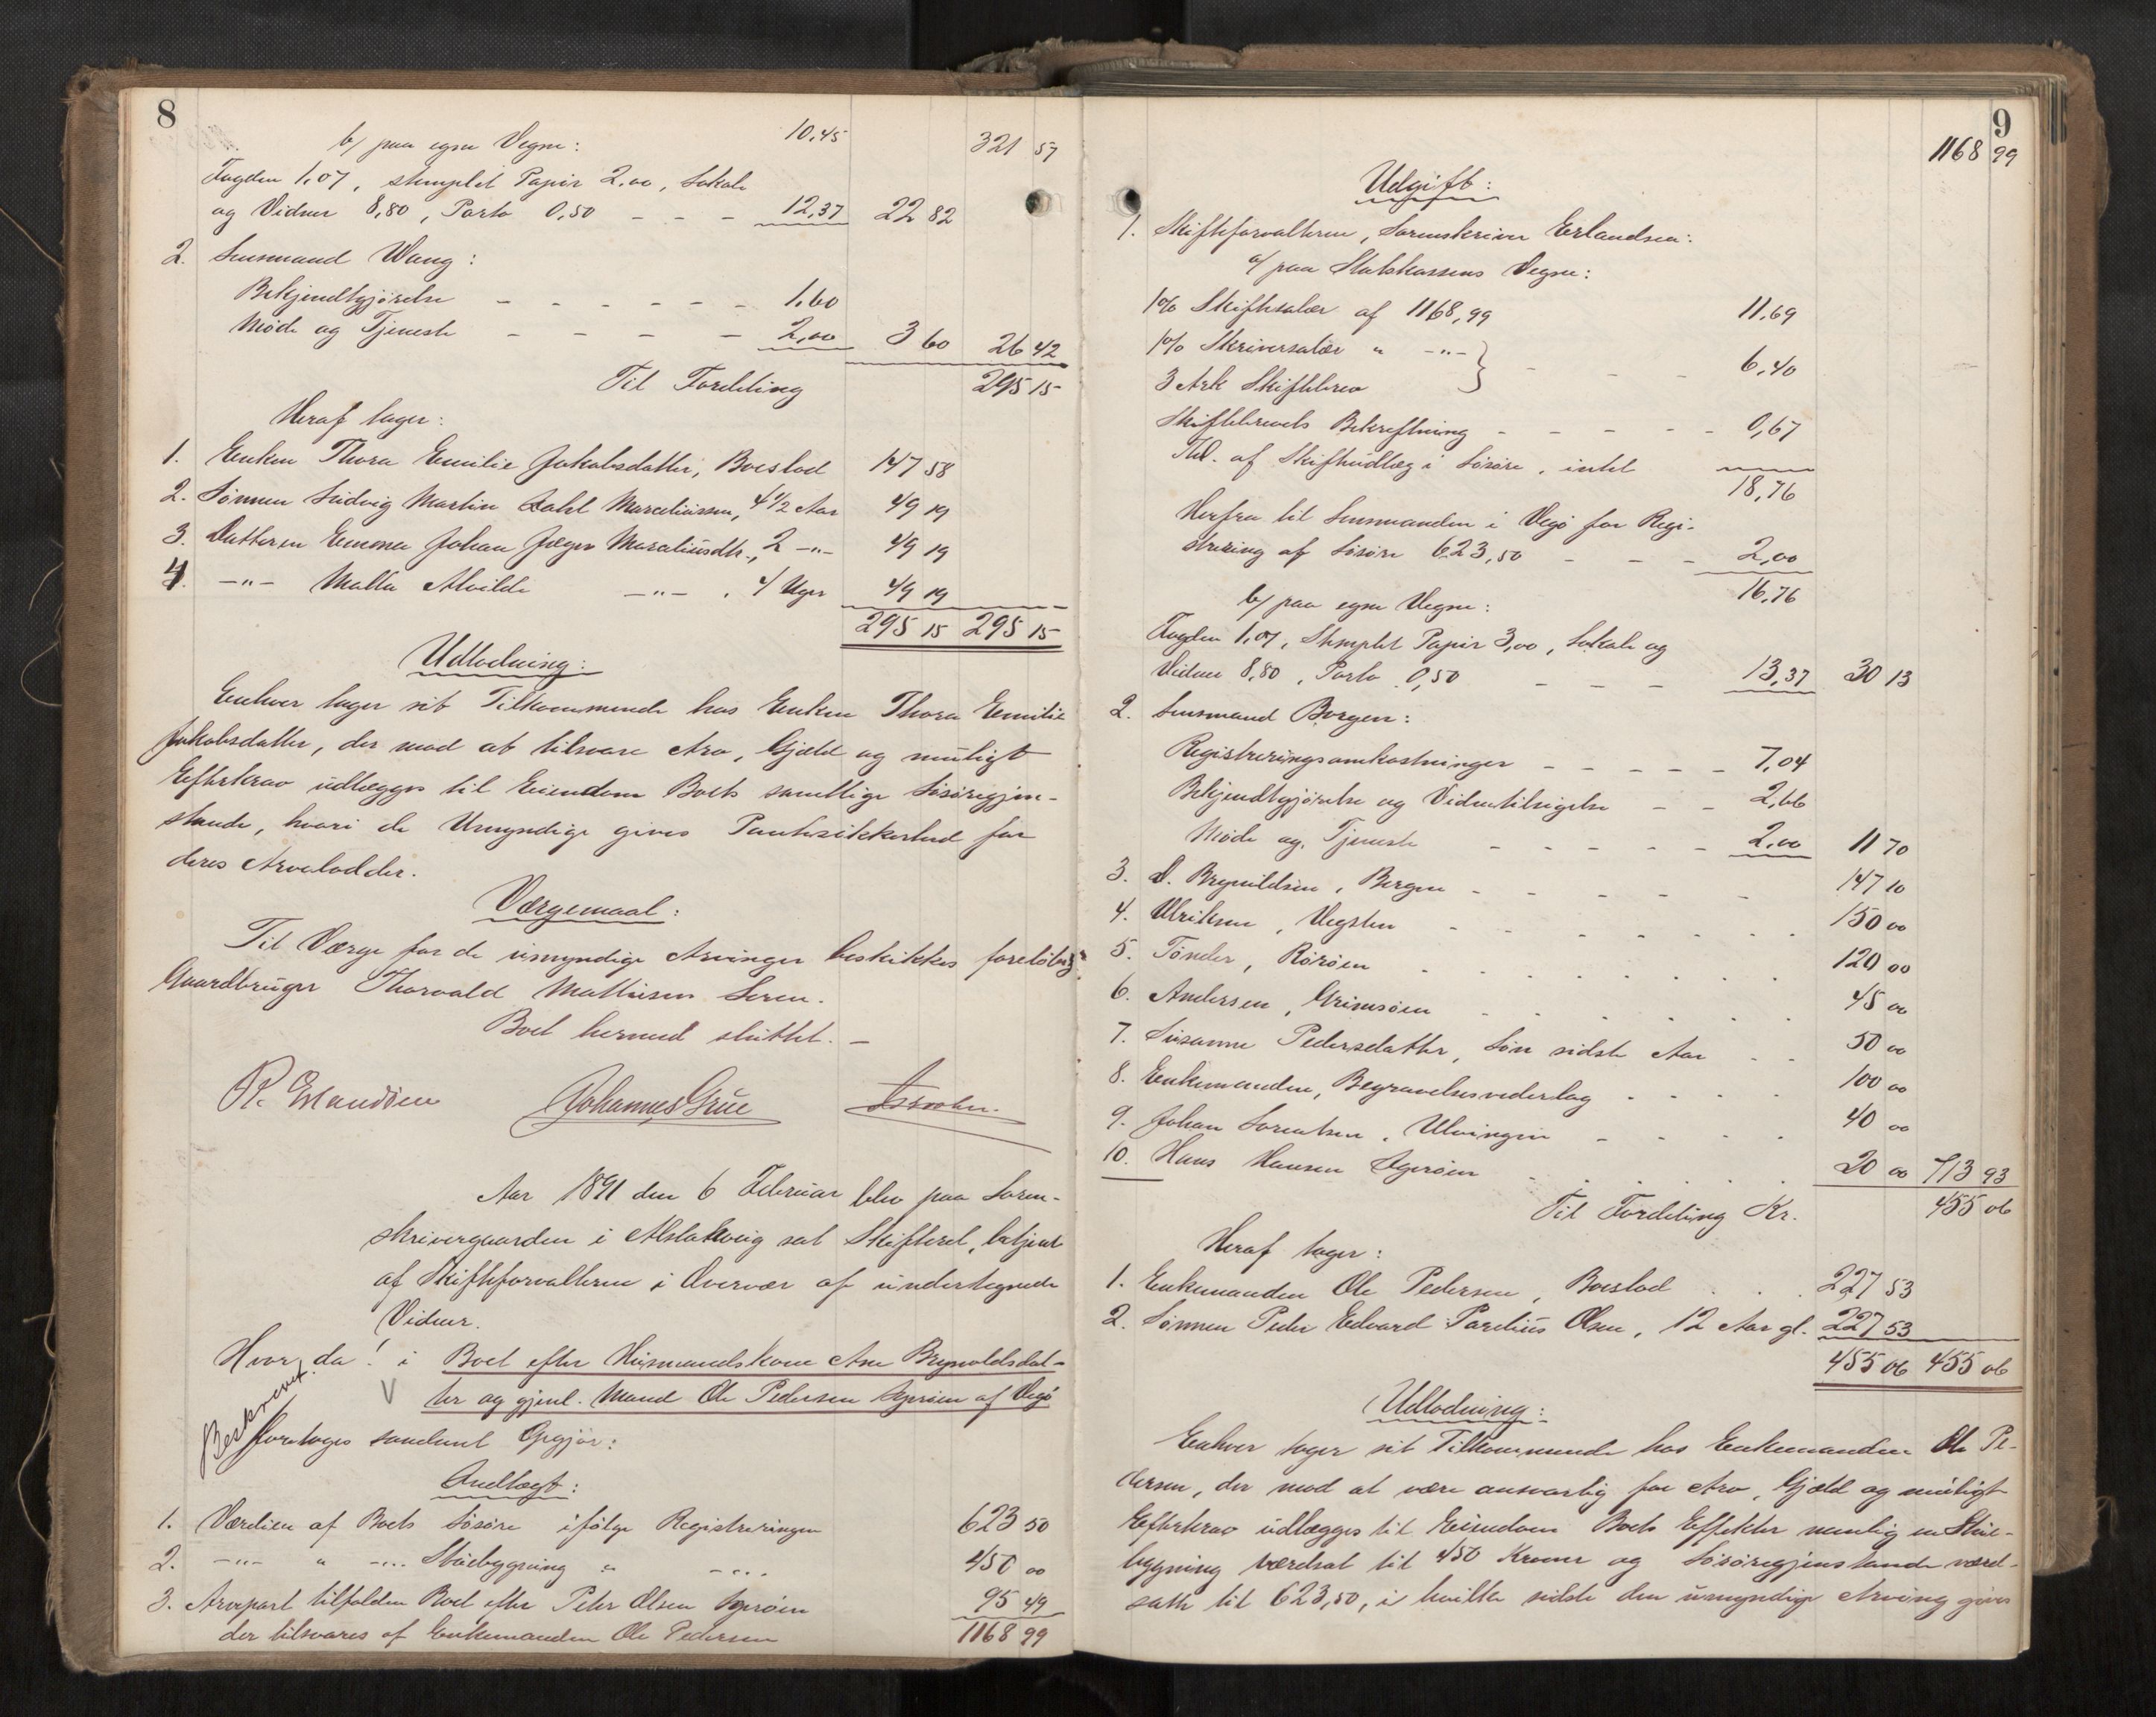 8
10,45 321 57
b/ paa egne Vegne:
Fogden 1,07, stemplet Papir 2,00, Lokale
og Vidner 8,80, Porto 0,50 - - - 12,37 22 82
2. Lensmand Wang:
Bekjendtgjørelse - - - - - - 1,60
Møde og Tjeneste - - - - 2,00 3 60 26 42
Til Fordeling 295 15
Heraf tager:
1. Enken Thora Emilie Jakobsdatter, Boeslod 147 58
2. Sønnen Ludvig Martin Dahl Marceliussen, 4 1/2 Aar 49 19
3. Datteren Emma Johan Jæger Maraliusdtr., 2 -"- 49 19
4. -"- Malla Alvilde -"- , 4 Uger 49 19
295 15 295 15
Udlodning:
Enhver tager sit Tilkommende hos Enken Thora Emilie
Jakobsdatter, der mod at tilsvare Arv, Gjæld og muligt
Efterkrav udlægges til Eiendom Boets samtlige Løsøregjen-
stande, hvori de Umyndige gives Pantesikkerhed for
deres Arvelodder.
Værgemaal:
Til Værge for de umyndige Arvinger beskikkes foreløbig
Gaardbruger Thorvald Mathisen Seren.
Boet hermed sluttet. -
R. Erlandsen Johannes Grue
Aar 1891 den 6 Februar blev paa Soren-
skrivergaarden i Alstahoug sat Skifteret, betjent
af Skifteforvalteren i Overvær af undertegnede
Vidner.
Hvor da! i Boet efter Husmandskone Ane Brynoldsdat-
ter og gjenl. Mand Ole Pedersen Igerøen af Vegø
Beskrevet
foretoges saadant Opgjør:
Indtægt:
1. Værdien af Boets Løsøre ifølge Registreringen 623 50
2. -"- " -"- Stuebygning " -"- 450 00
3. Arvepart tilfalden Boet efter Peter Olsen Igerøen 95 49
der tilsvares af Enkemanden Ole Pedersen 1168 99
9
1168 99
Udgift:
1. Skifteforvalteren, Sorenskriver Erlandsen:
a/ paa Statskassens Vegne:
1% Skiftesalær af 1168,99 11,69
1% Skriversalær " -"- }
3 Ark Skiftebrev } - - - 6,40
Skiftebrevets Bekræftning - - - - - 0,67
Thl. af Skifteudlæg i Løsøre, intet
18,76
Herfra til Lensmanden i Vegø for Regi-
strering af Løsøre 623,50 - - - 2,00
16,76
b/ paa egne Vegne:
Fogden 1,07, Stemplet Papir 3,00, Lokale og
Vidner 8,80, Porto 0,50 - - - 13,37 30 13
2. Lensmand Borgen:
Registreringsomkostninger - - - - - 7,04
Bekjendtgjørelse og Vidnetilsigelse - - 2,66
Møde og Tjeneste - - - - - 2,00 11 70
3. D. Brynildsen, Bergen - - - - - 147 10
4. Ulriksen, Vegsten - - - - - 150 00
5. Tønder, Rørøen - - - - - 120 00
6. Andersen, Grimsøen - - - - - 45 00
7. Susanne Pedersdatter, Løn sidste Aar - - 50 00
8. Enkemanden, Begravelsesvederlag - - - - 100 00
9. Johan Lorentsen, Ulvingen - - - - 40 00
10. Hans Hansen Igerøen - - - - - 20 00 713 93
Til Fordeling Kr. 455 06
Heraf tager:
1. Enkemanden Ole Pedersen, Boeslod . . . 227 53
2. Sønnen Peder Edvard Parelius Olsen, 12 Aar gl. 227 53
455 06 455 06
Udlodning:
Enhver tager sit Tilkommende hos Enkemanden Ole Pe-
dersen, der mod at være ansvarlig for Arv, Gjæld og muligt
Efterkrav udlægges til Eiendom Boets Effekter nemlig en Stue-
bygning værdsat til 450 Kroner og Løsøregjenstande værd-
satte til 623,50, i hvilke sidste den umyndige Arving gives